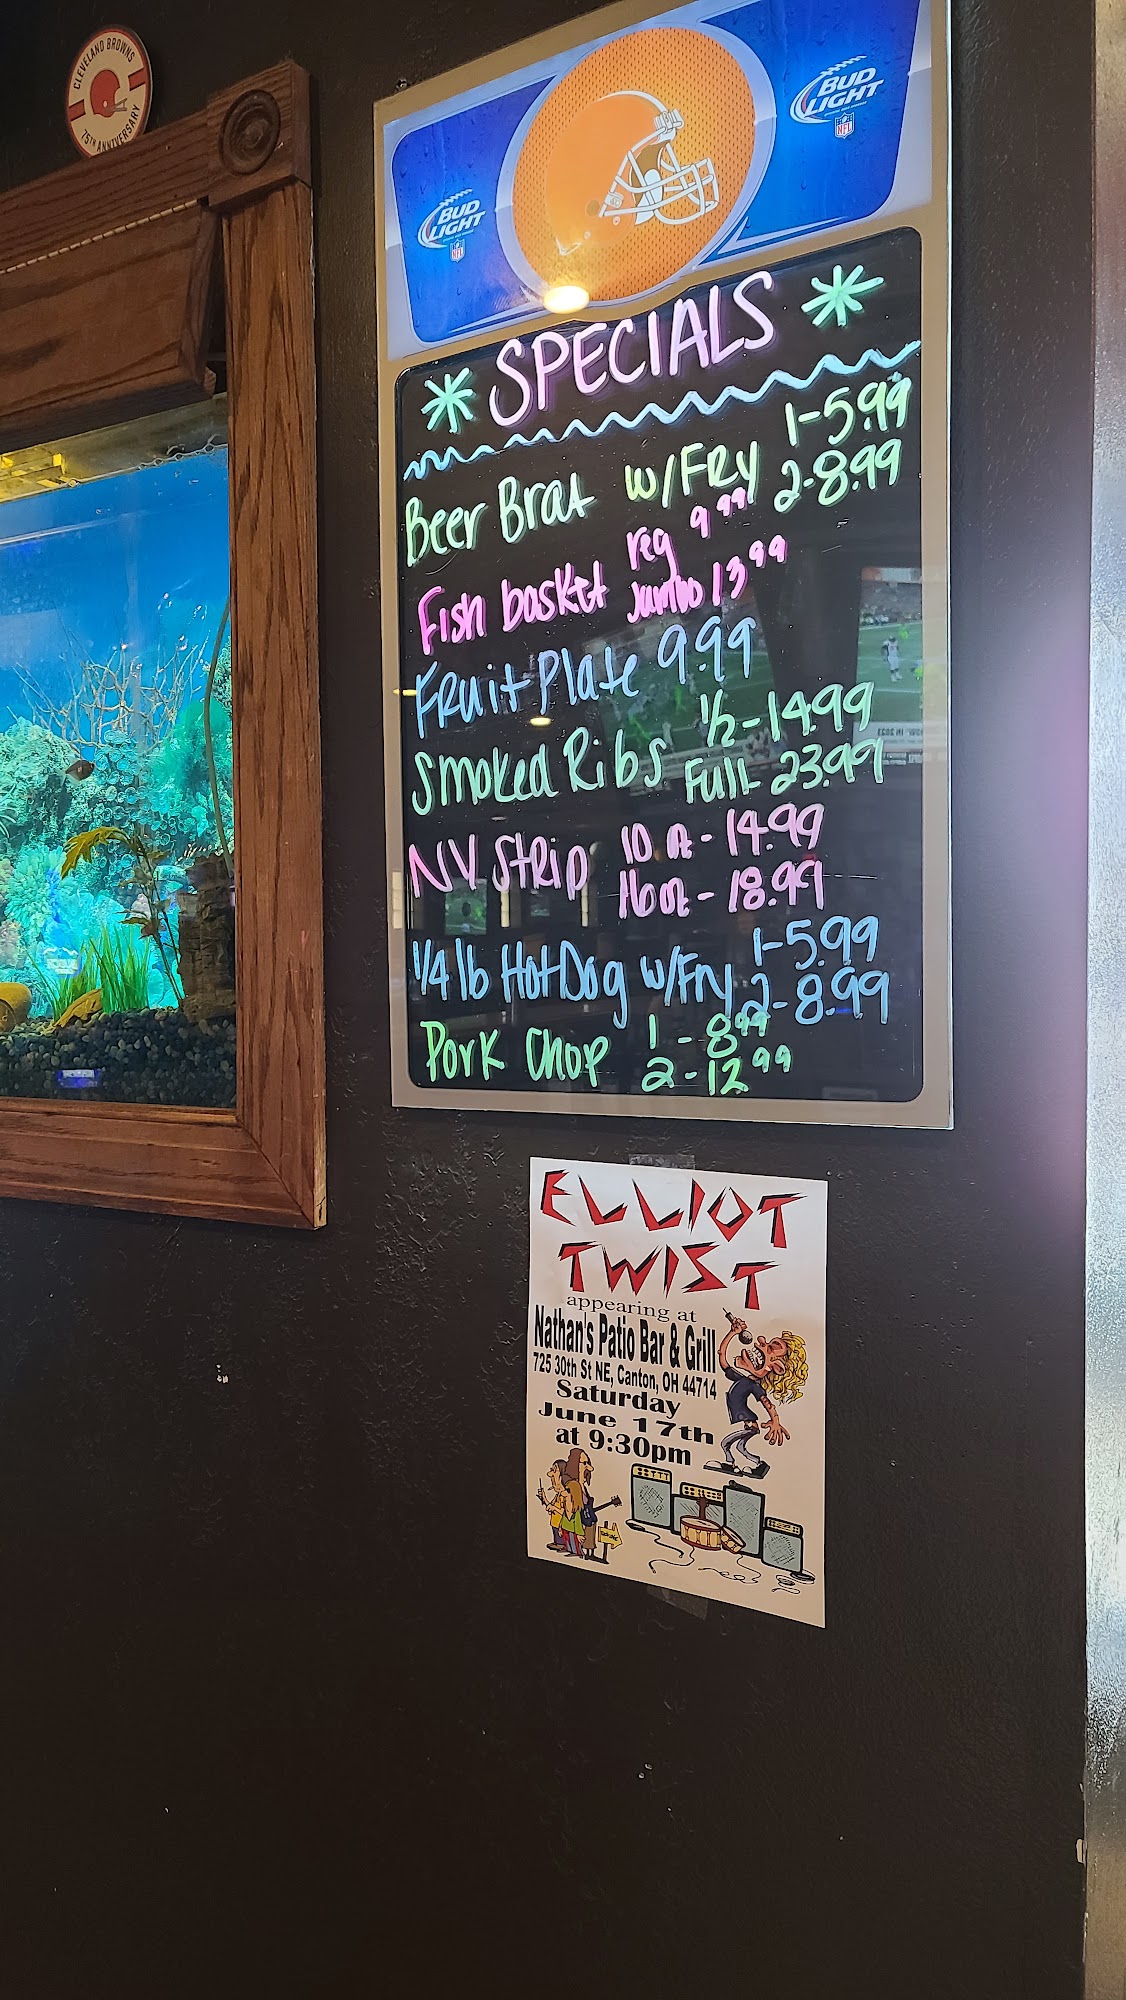 CLEVELAND BROWNS
75TH ANNIVERSARY
BUD LIGHT
NFL
BUD LIGHT
NFL
* SPECIALS *
Beer Brat w/FRy 1-5.99
2-8.99
Fish basket reg 9.99
Jumbo 13.99
Fruit Plate 9.99
Smoked Ribs 1/2-14.99
Full 23.99
NY Strip 10 oz-14.99
16 oz-18.99
1/4 lb Hot Dog w/Fry 1-5.99
2-8.99
Pork Chop 1-8.99
2-12.99
ELLIOT
TWIST
appearing at
Nathan's Patio Bar & Grill
725 30th St NE, Canton, OH 44714
Saturday
June 17th
at 9:30pm